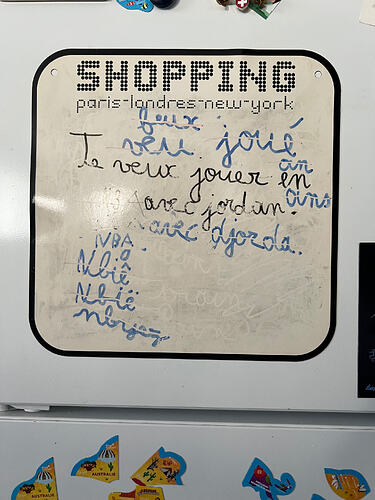 SHOPPING
paris-londres-new-york
feux
veu joué
Je veux jouer en
an
ans
avec jordan.
avec djorda.
NBA
Nbiê
Nbië
AUSTRALIE
AUSTRALIE